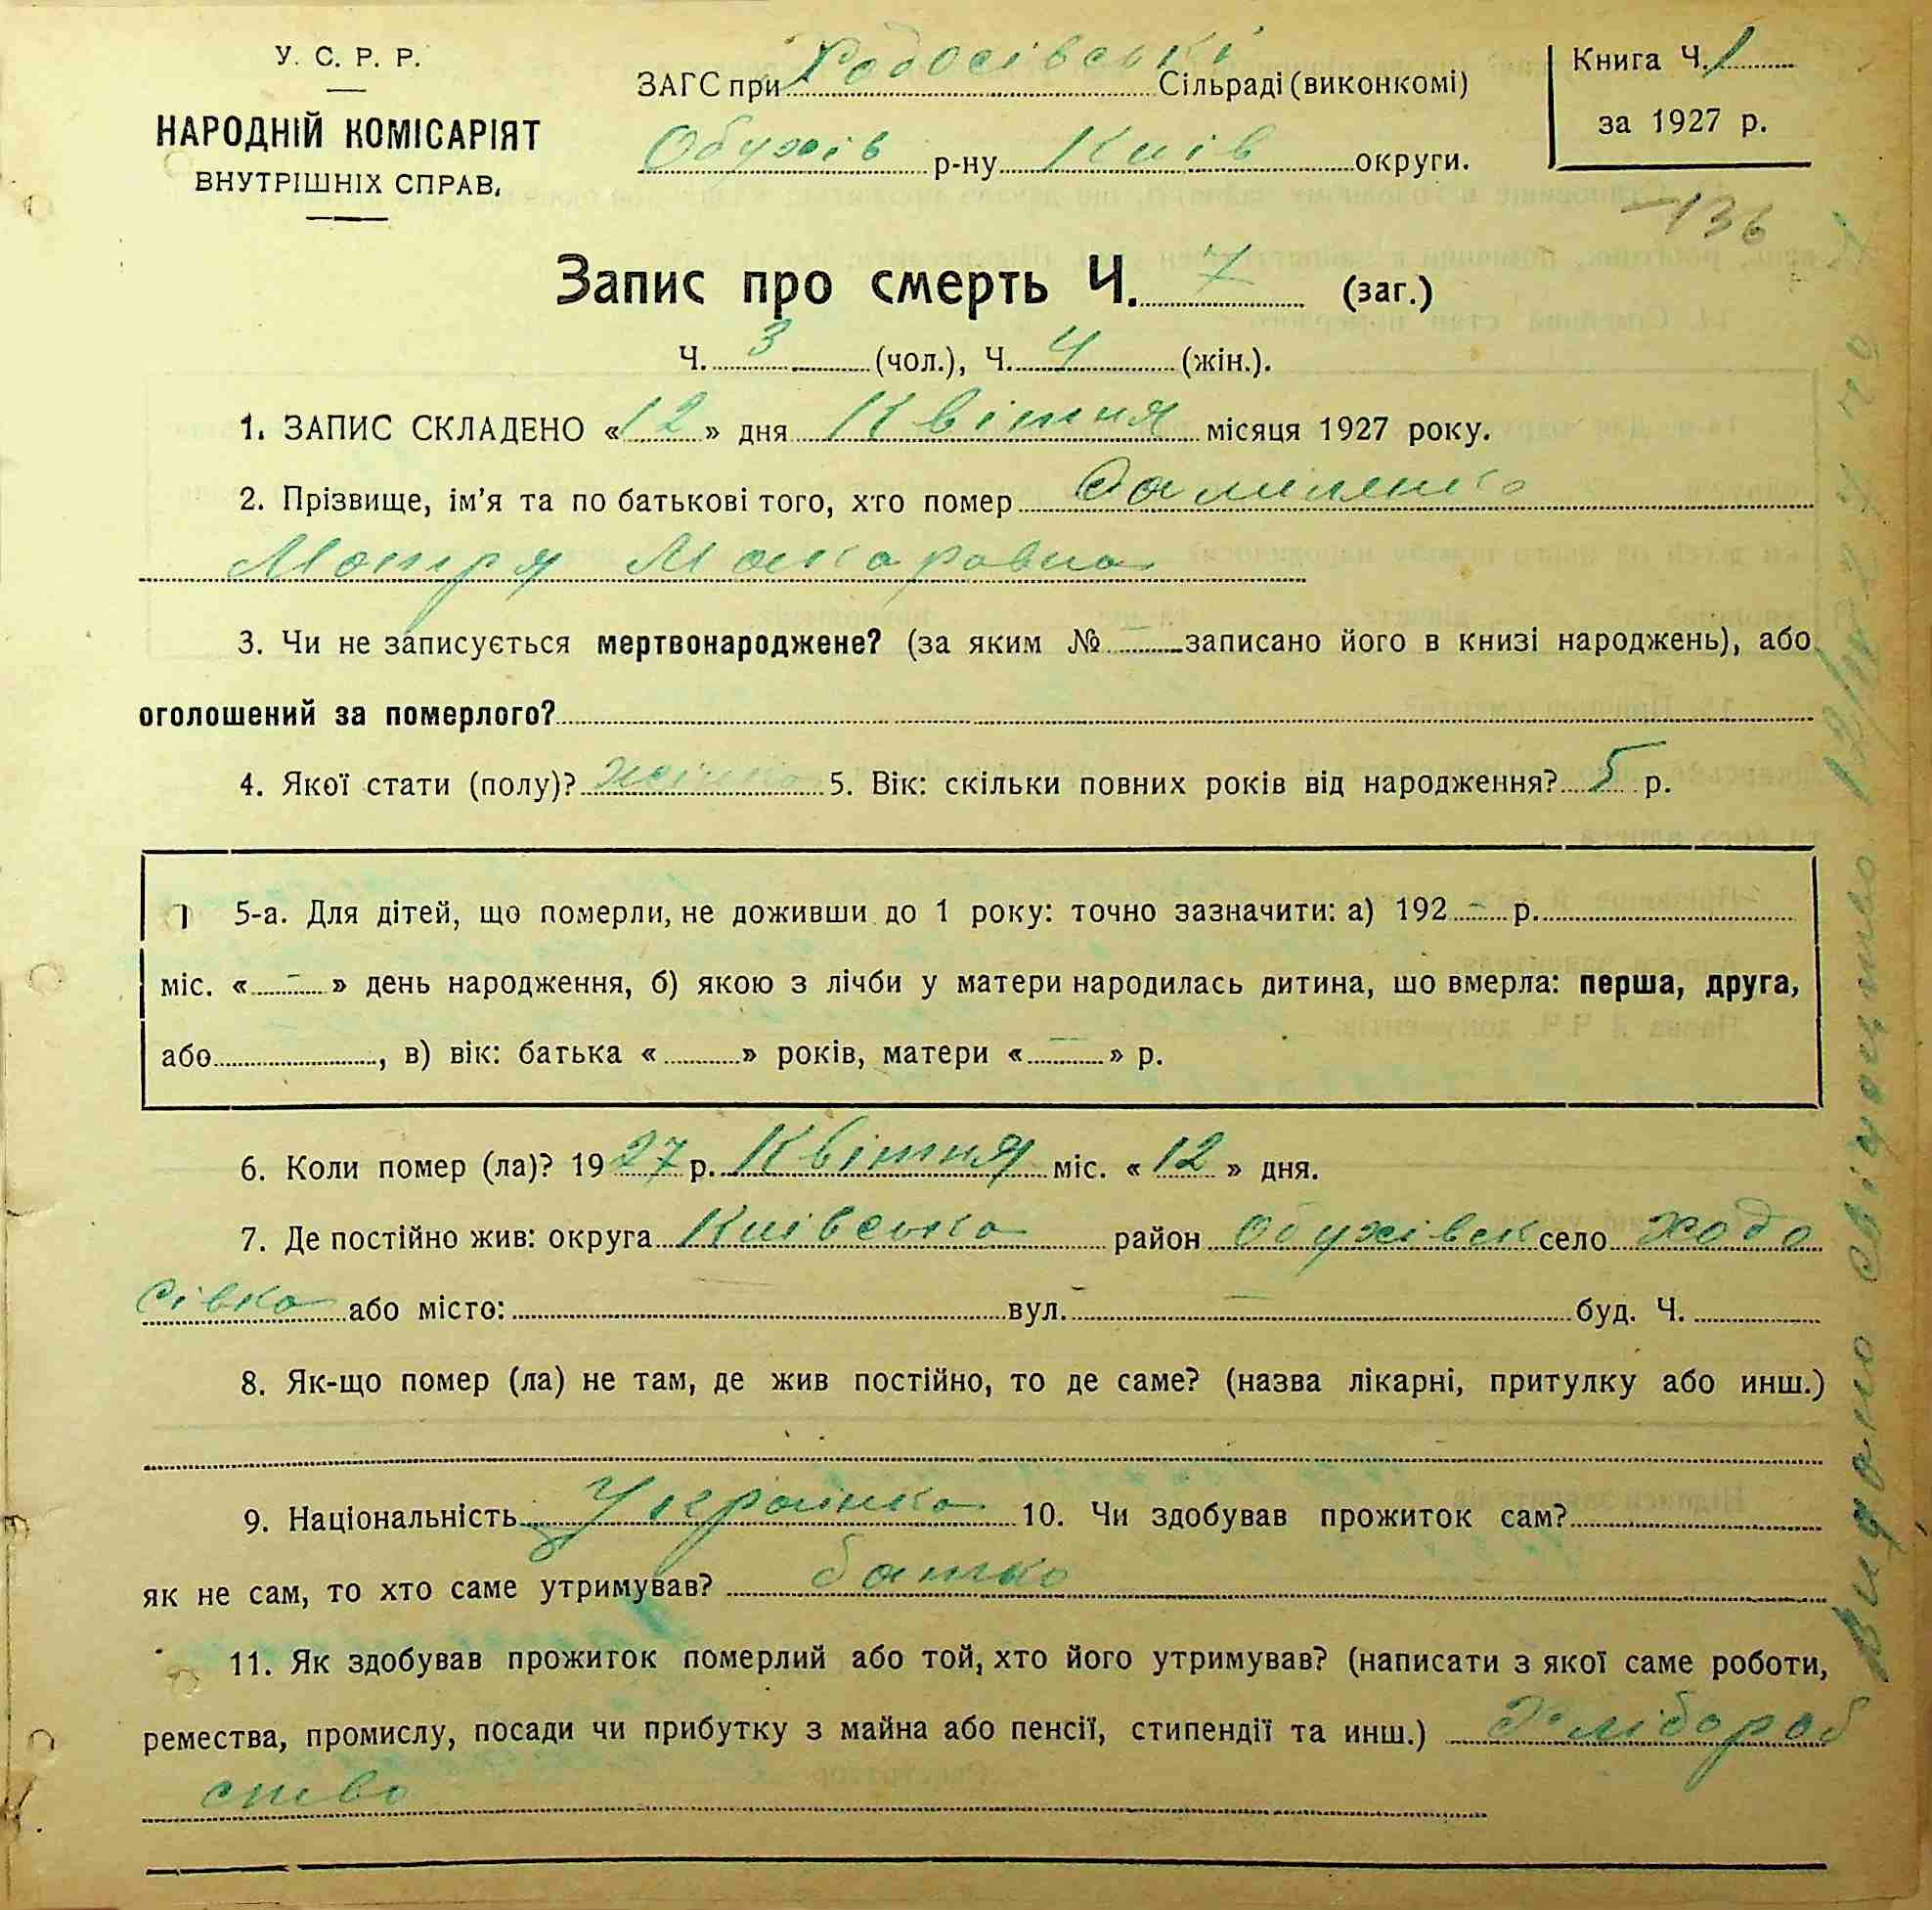 У. С. Р. Р.
НАРОДНІЙ КОМІСАРІЯТ
ВНУТРІШНІХ СПРАВ.
ЗАГС при Ходосівські Сільраді (виконкомі)
Обухів р-ну Київ округи.
Книга Ч. 1
за 1927 р.
136
Запис про смерть Ч. 7 (заг.)
Ч. 3 (чол.), Ч. 4 (жін.).
1. ЗАПИС СКЛАДЕНО «12» дня Квітня місяця 1927 року.
2. Прізвище, ім'я та по батькові того, хто помер
Мотря Макаровна
3. Чи не записується мертвонароджене? (за яким № — записано його в книзі народжень), або
оголошений за померлого?
4. Якої стати (полу)? жінка 5. Вік: скільки повних років від народження? 5 р.
5-а. Для дітей, що померли, не доживши до 1 року: точно зазначити: а) 192 - р.
міс. « - » день народження, б) якою з лічби у матери народилась дитина, що вмерла: перша, друга,
або , в) вік: батька « » років, матери « — » р.
6. Коли помер (ла)? 1927 р. Квітня міс. «12» дня.
7. Де постійно жив: округа Київська район Обухівск село Ходо
сівка або місто: вул. — буд. Ч.
8. Як-що помер (ла) не там, де жив постійно, то де саме? (назва лікарні, притулку або инш.)
9. Національність Украінка 10. Чи здобував прожиток сам?
як не сам, то хто саме утримував? батько
11. Як здобував прожиток померлий або той, хто його утримував? (написати з якої саме роботи,
ремества, промислу, посади чи прибутку з майна або пенсії, стипендії та инш.) Хлібороб
ство
Видано свідоцтво 12/IV 27